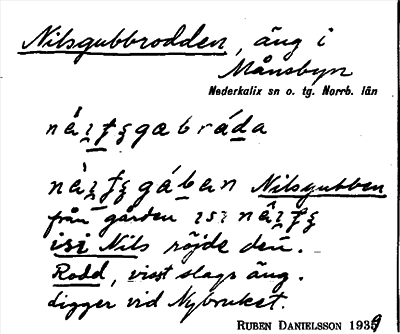 Nilsgubbrodden, äng i
Månsbyn
Nederkalix sn o. tg. Norrb. län
Nilsgubben
från gården
isi Nils röjde den.
Rodd, visst slags äng.
Ligger vid Nybruket.
RUBEN DANIELSSON 1939